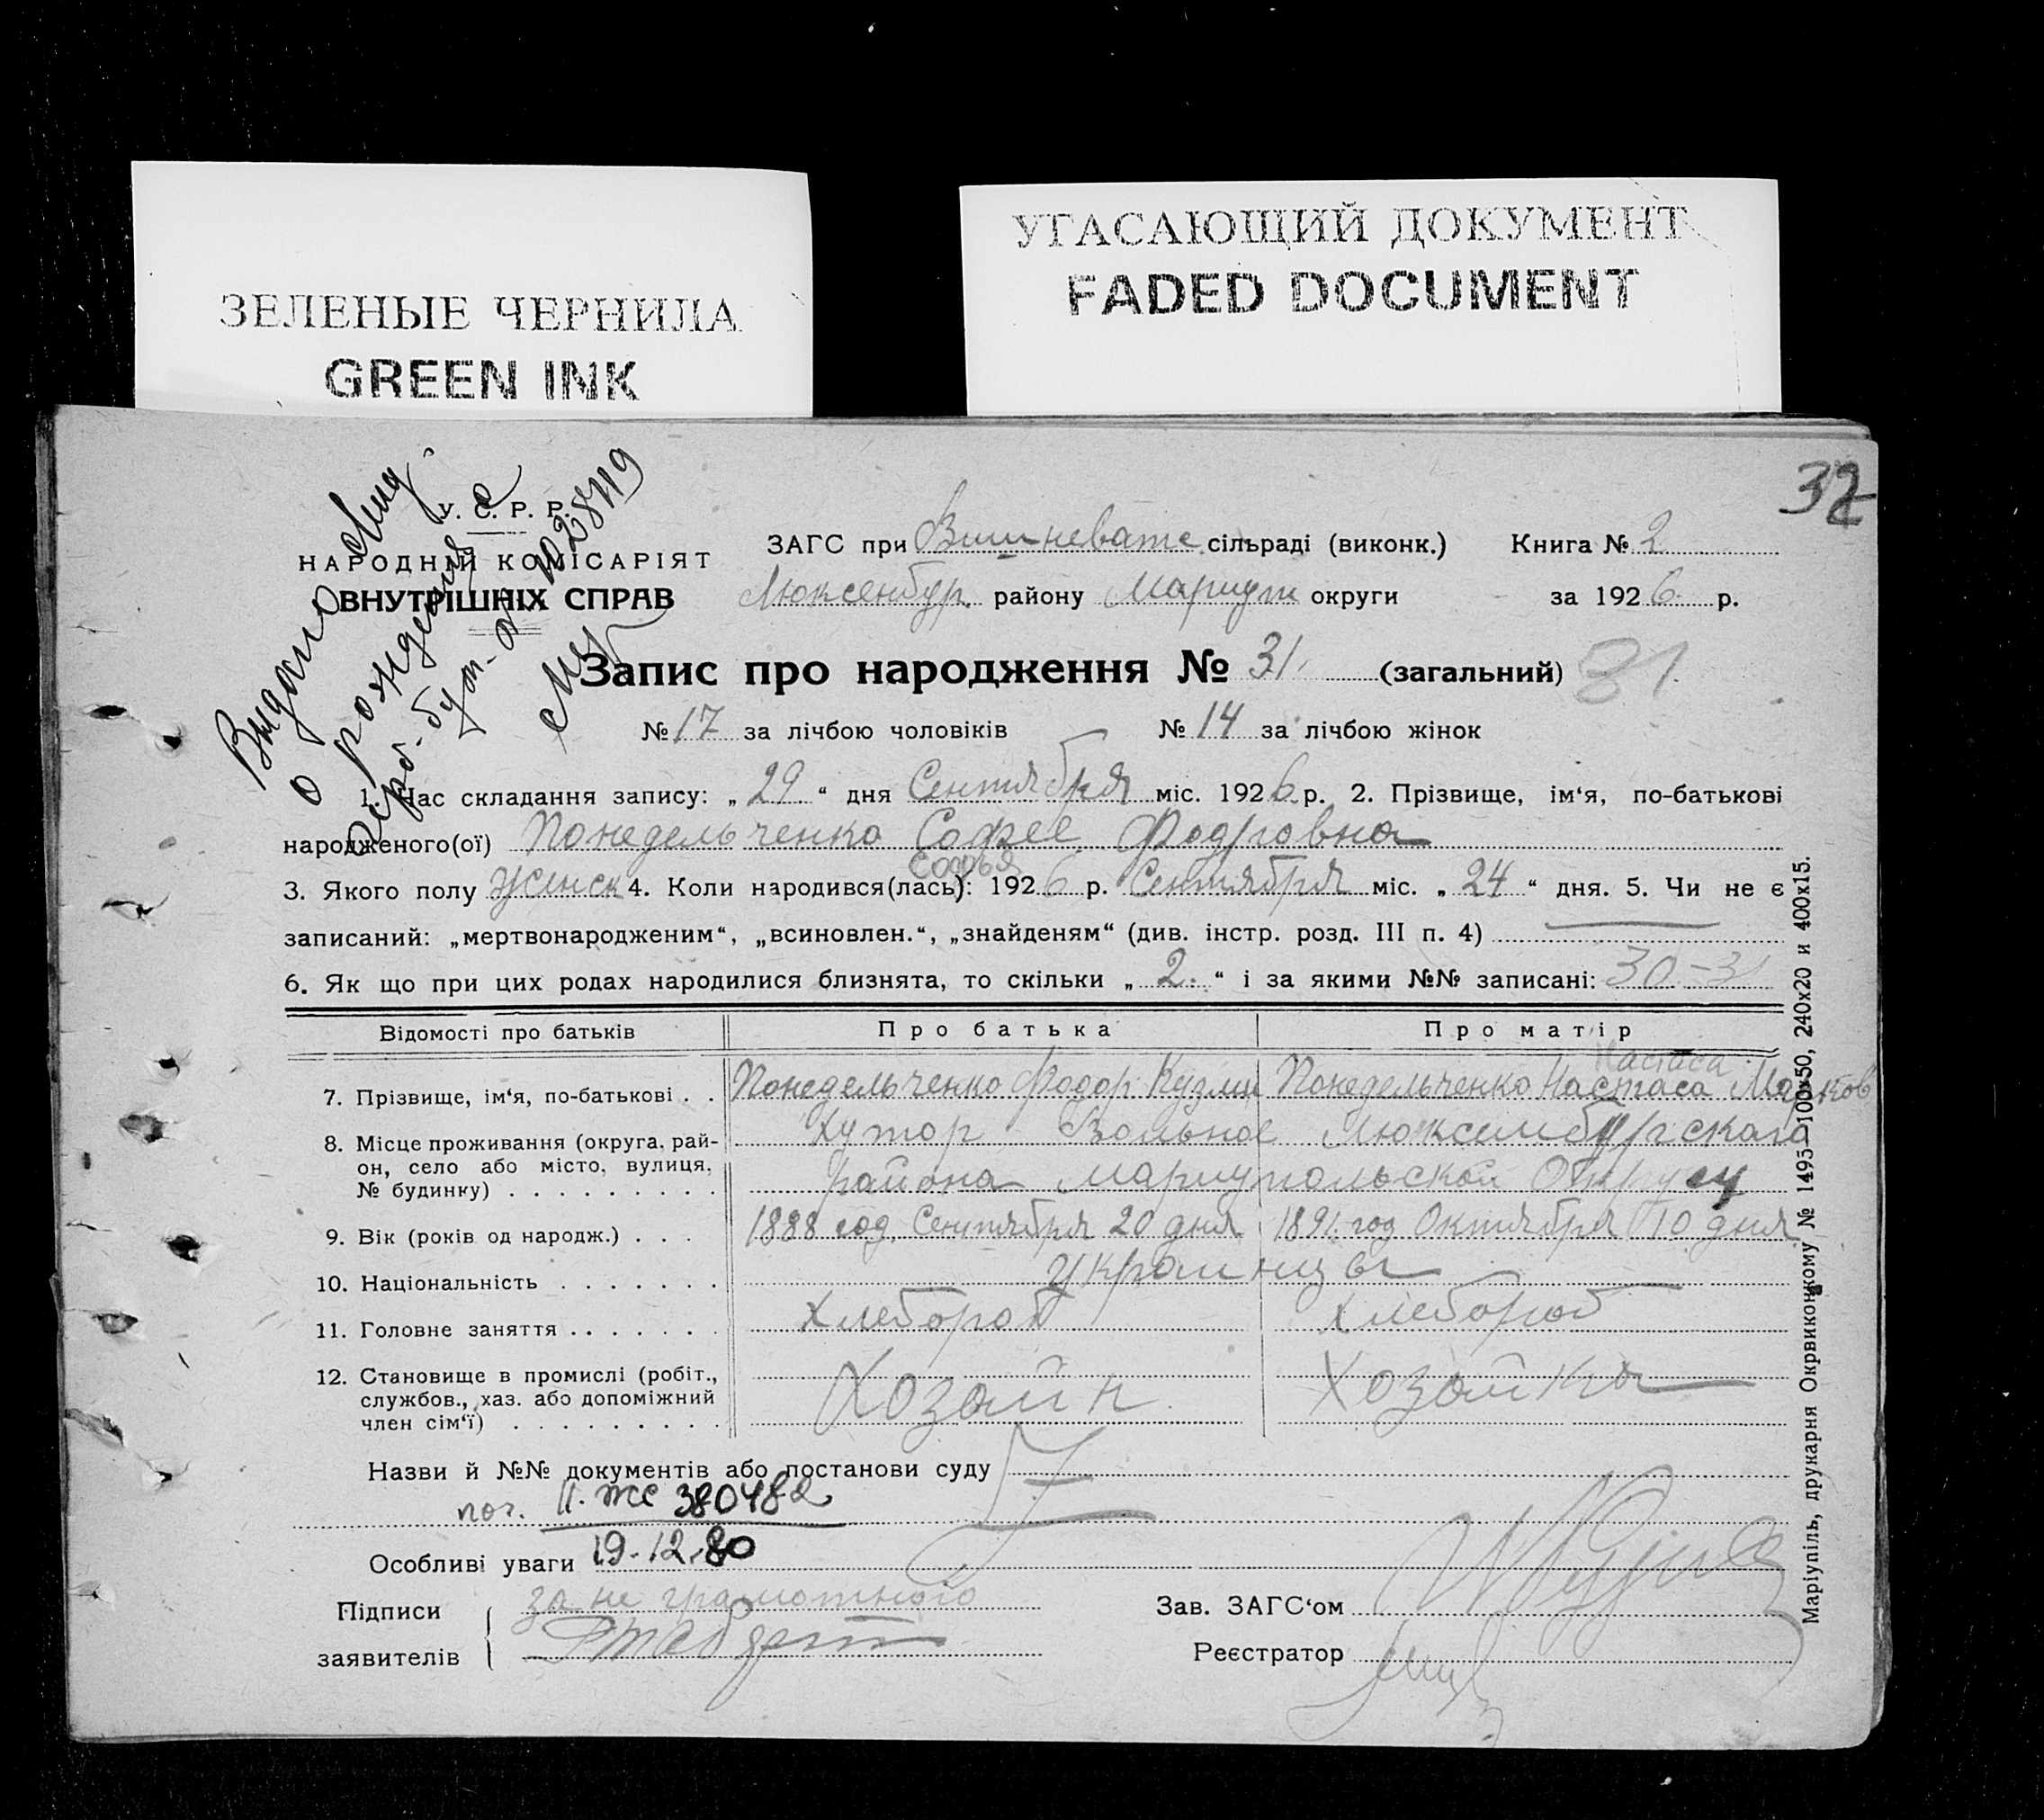 ЗЕЛЕНЫЕ ЧЕРНИЛА
GREEN INK
УГАСАЮЩИЙ ДОКУМЕНТ
FADED DOCUMENT
32
У. С. Р. Р.
НАРОДНІЙ КОМІСАРІЯТ
ВНУТРІШНІХ СПРАВ
Видано
о рождения
ЗАГС при Вишневате сільраді (виконк.) Книга № 2
Люксенбур. району Мариуп округи за 1926 р.
Запис про народження № 31. (загальний) 31
№ 17 за лічбою чоловіків № 14 за лічбою жінок
1. Час складання запису: „ 29 “ дня Сентября міс. 1926 р. 2. Прізвище, ім‘я, по-батькові
народженого(ої) Понедельченко Софее Фодровна
Софья
3. Якого полу Женск 4. Коли народився(лась): 1926 р. Сентября міс. „ 24 “ дня. 5. Чи не є
записаний: „мертвонародженим“, „всиновлен.“, „знайденям“ (див. інстр. розд. III п. 4)
6. Як що при цих родах народилися близнята, то скільки „ 2. “ і за якими №№ записані: 30-31
Відомості про батьків Про батька Про матір
Настаса
7. Прізвище, ім‘я, по-батькові . . Понедельченко Фодор Кузми Понедельченко Настаса Марков
8. Місце проживання (округа, рай-он, село або місто, вулиця, № будинку) . . . . . . . . . Хутор Вольное Люксембургскаго
района Мариупольской Округи
9. Вік (років од народж.) . . . 1888 год. Сентября 20 дня 1891 год Октября 10 дня
10. Національність . . . . . . . украинцы
11. Головне заняття . . . . . . . Хлебороб Хлебороб
12. Становище в промислі (робіт., службов., хаз. або допоміжний член сім‘ї) . . . . . . . . . Хозаин Хозайка
Назви й №№ документів або постанови суду
II-ЖС 380482
19.12.80
Особливі уваги
Підписи заявителів
за не грамотного
Зав. ЗАГС‘ом
Реєстратор
Маріупіль, друкарня Окрвиконкому № 1495—100х50, 240х20 и 400х15.